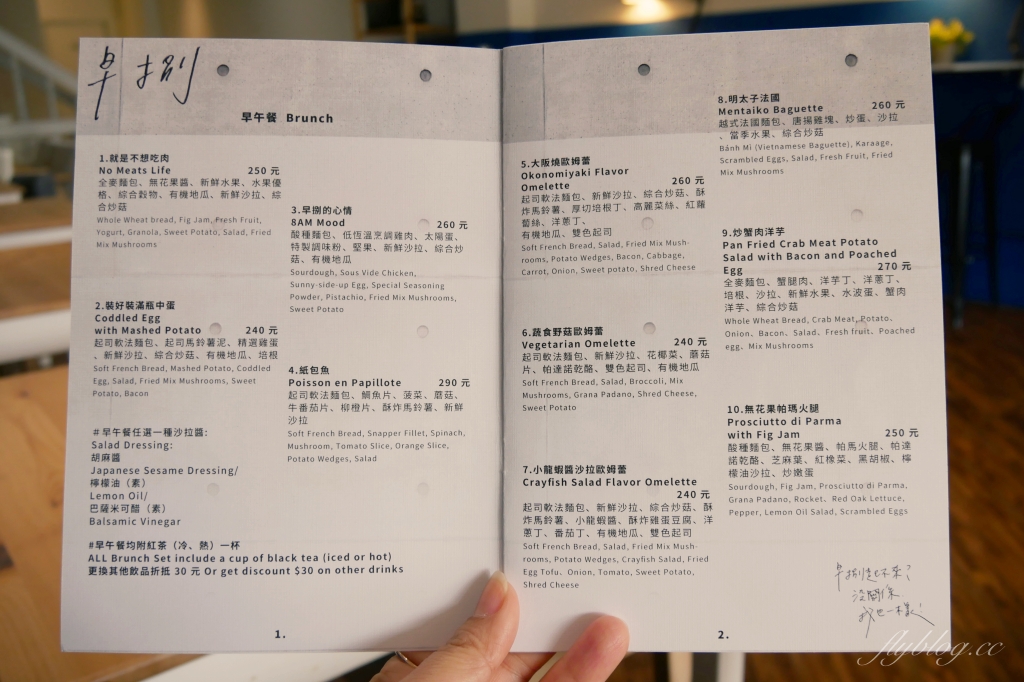 早捌
早午餐 Brunch
1.就是不想吃肉
No Meats Life 250 元
全麥麵包、無花果醬、新鮮水果、水果優
格、綜合穀物、有機地瓜、新鮮沙拉、綜
合炒菇
Whole Wheat bread, Fig Jam, Fresh Fruit,
Yogurt, Granola, Sweet Potato, Salad, Fried
Mix Mushrooms
2.裝好裝滿瓶中蛋
Coddled Egg
with Mashed Potato 240 元
起司軟法麵包、起司馬鈴薯泥、精選雞蛋
、新鮮沙拉、綜合炒菇、有機地瓜、培根
Soft French Bread, Mashed Potato, Coddled
Egg, Salad, Fried Mix Mushrooms, Sweet
Potato, Bacon
#早午餐任選一種沙拉醬:
Salad Dressing:
胡麻醬
Japanese Sesame Dressing/
檸檬油（素）
Lemon Oil/
巴薩米可醋（素）
Balsamic Vinegar
#早午餐均附紅茶（冷、熱）一杯
ALL Brunch Set include a cup of black tea (iced or hot)
更換其他飲品折抵 30 元 Or get discount $30 on other drinks
3.早捌的心情
8AM Mood 260 元
酸種麵包、低恆溫烹調雞肉、太陽蛋、
特製調味粉、堅果、新鮮沙拉、綜合炒
菇、有機地瓜
Sourdough, Sous Vide Chicken,
Sunny-side-up Egg, Special Seasoning
Powder, Pistachio, Fried Mix Mushrooms,
Sweet Potato
4.紙包魚
Poisson en Papillote 290 元
起司軟法麵包、鯛魚片、菠菜、蘑菇、
牛番茄片、柳橙片、酥炸馬鈴薯、新鮮
沙拉
Soft French Bread, Snapper Fillet, Spinach,
Mushroom, Tomato Slice, Orange Slice,
Potato Wedges, Salad
1.
5.大阪燒歐姆蕾
Okonomiyaki Flavor
Omelette 260 元
起司軟法麵包、新鮮沙拉、綜合炒菇、酥
炸馬鈴薯、厚切培根丁、高麗菜絲、紅蘿
蔔絲、洋蔥丁、
有機地瓜、雙色起司
Soft French Bread, Salad, Fried Mix Mush-
rooms, Potato Wedges, Bacon, Cabbage,
Carrot, Onion, Sweet potato, Shred Cheese
6.蔬食野菇歐姆蕾
Vegetarian Omelette 240 元
起司軟法麵包、新鮮沙拉、花椰菜、蘑菇
片、帕達諾乾酪、雙色起司、有機地瓜
Soft French Bread, Salad, Broccoli, Mix
Mushrooms, Grana Padano, Shred Cheese,
Sweet Potato
7.小龍蝦醬沙拉歐姆蕾
Crayfish Salad Flavor Omelette
240 元
起司軟法麵包、新鮮沙拉、綜合炒菇、酥
炸馬鈴薯、小龍蝦醬、酥炸雞蛋豆腐、洋
蔥丁、番茄丁、有機地瓜、雙色起司
Soft French Bread, Salad, Fried Mix Mush-
rooms, Potato Wedges, Crayfish Salad, Fried
Egg Tofu、Onion, Tomato, Sweet Potato,
Shred Cheese
8.明太子法國
Mentaiko Baguette 260 元
越式法國麵包、唐揚雞塊、炒蛋、沙拉
、當季水果、綜合炒菇
Bánh Mì (Vietnamese Baguette), Karaage,
Scrambled Eggs, Salad, Fresh Fruit, Fried
Mix Mushrooms
9.炒蟹肉洋芋
Pan Fried Crab Meat Potato
Salad with Bacon and Poached
Egg 270 元
全麥麵包、蟹腿肉、洋芋丁、洋蔥丁、
培根、沙拉、新鮮水果、水波蛋、蟹肉
洋芋、綜合炒菇
Whole Wheat Bread, Crab Meat, Potato、
Onion、Bacon、Salad、Fresh fruit、Poached
egg、Mix Mushrooms
10.無花果帕瑪火腿
Prosciutto di Parma
with Fig Jam 250 元
酸種麵包、無花果醬、帕馬火腿、帕達
諾乾酪、芝麻葉、紅橡菜、黑胡椒、檸
檬油沙拉、炒嫩蛋
Sourdough, Fig Jam, Prosciutto di Parma,
Grana Padano, Rocket、Red Oak Lettuce,
Pepper, Lemon Oil Salad, Scrambled Eggs
早捌起不來?
沒關係
我也一樣!
2.
flyblog.cc